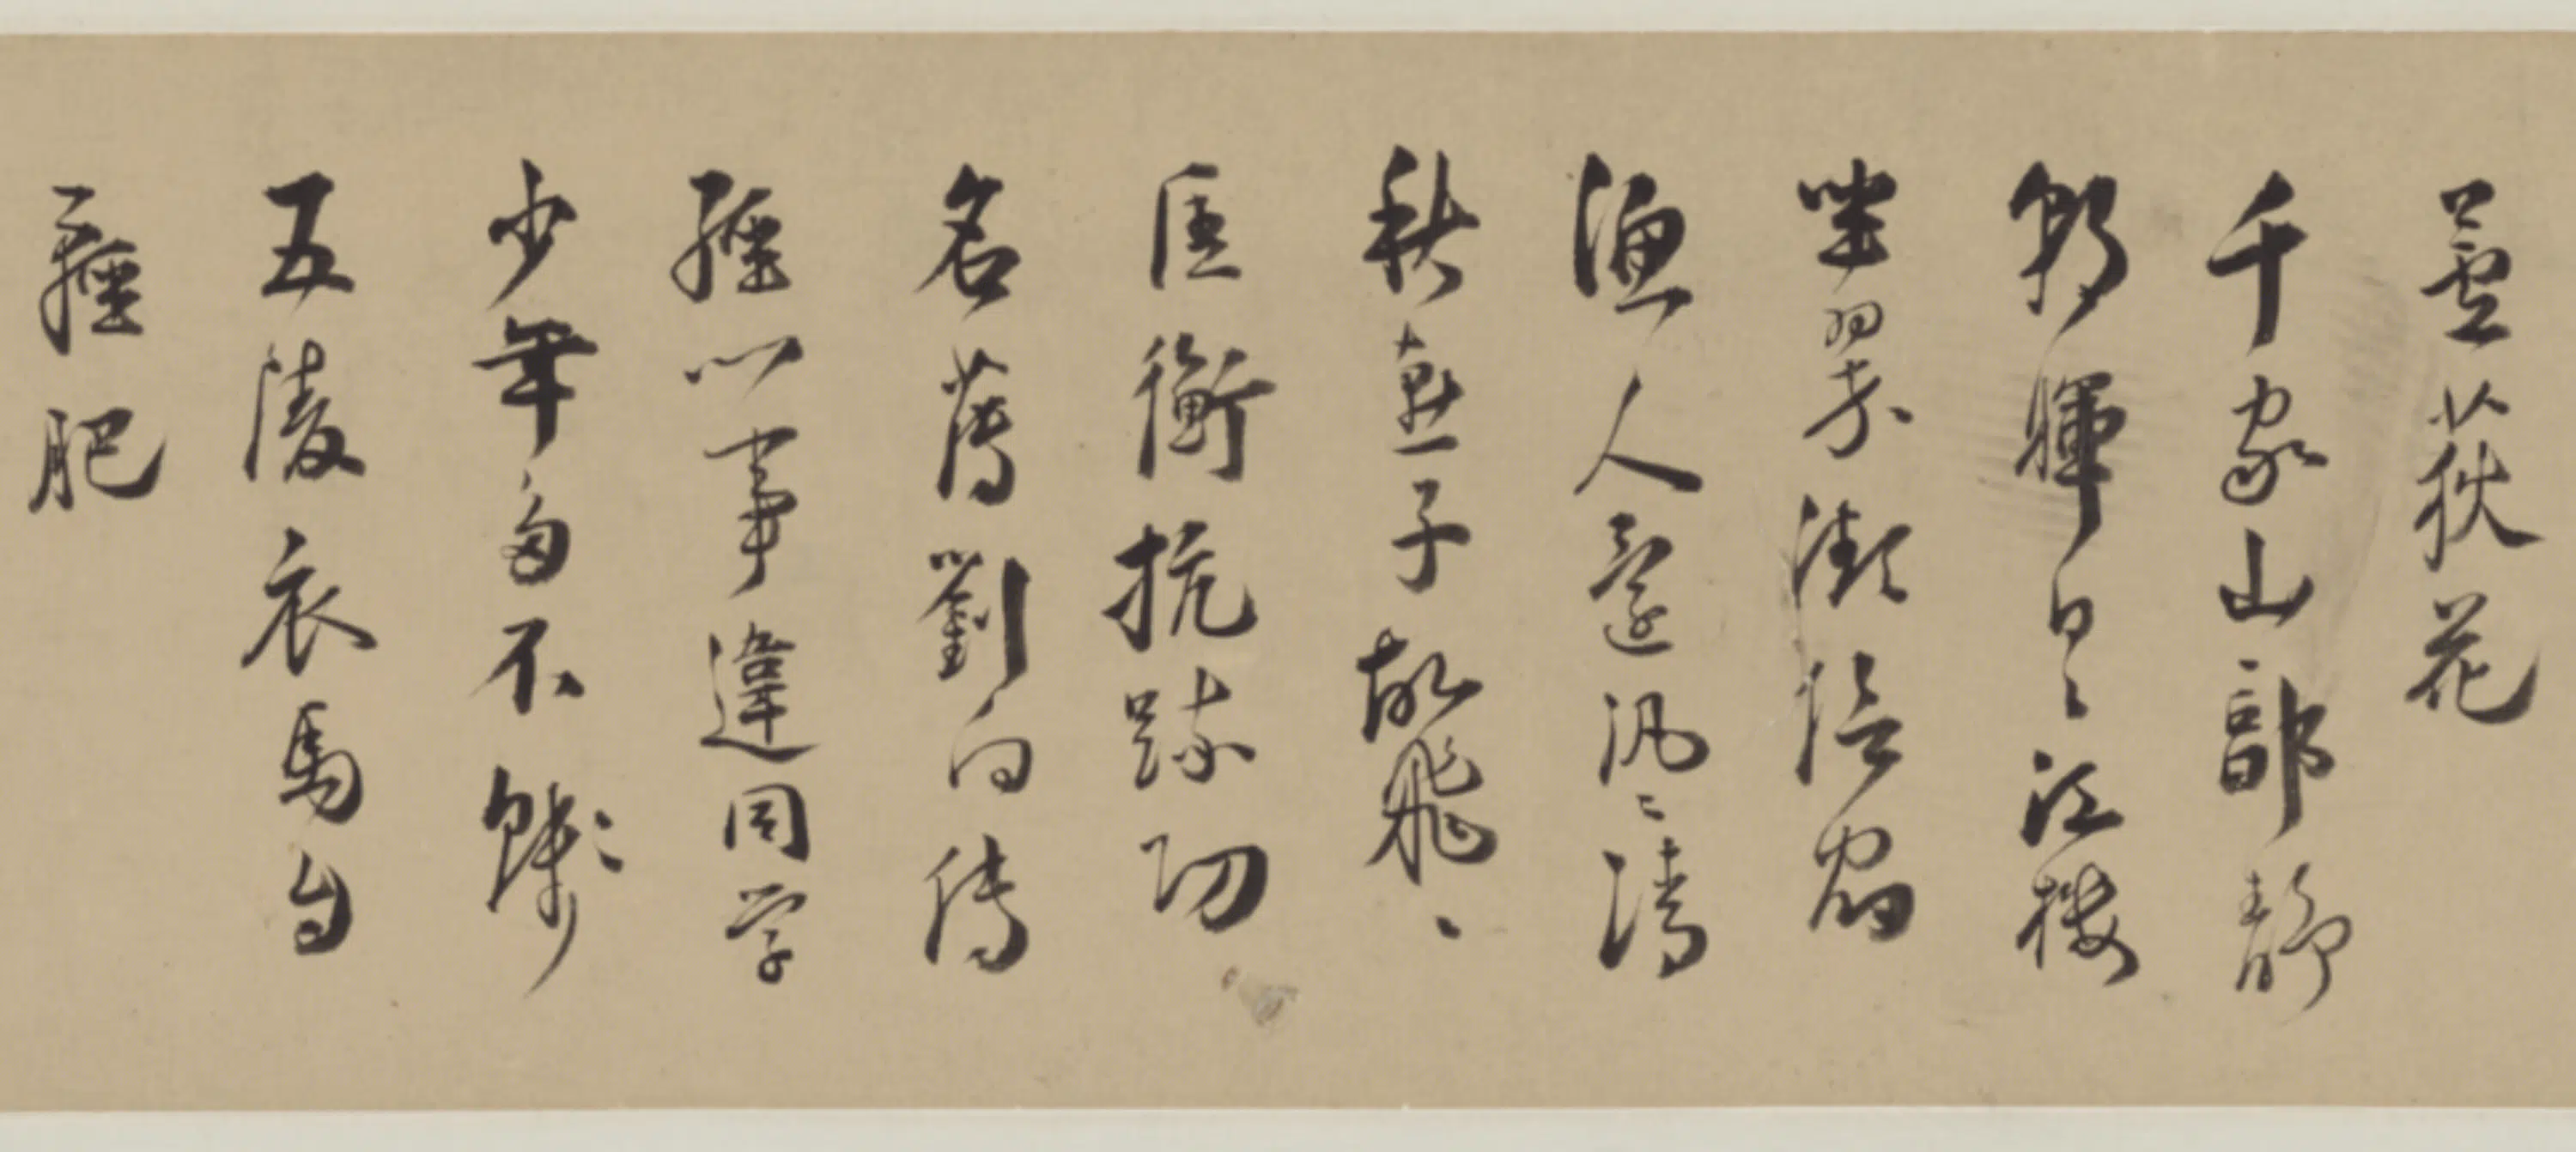 蘆荻花
千家山郭靜
朝暉日々江樓
坐翠微信宿
漁人還汎々清
秋燕子故飛々
匡衡抗疏功
名薄劉向傳
經心事違同學
少年多不賤
五陵衣馬自
輕肥